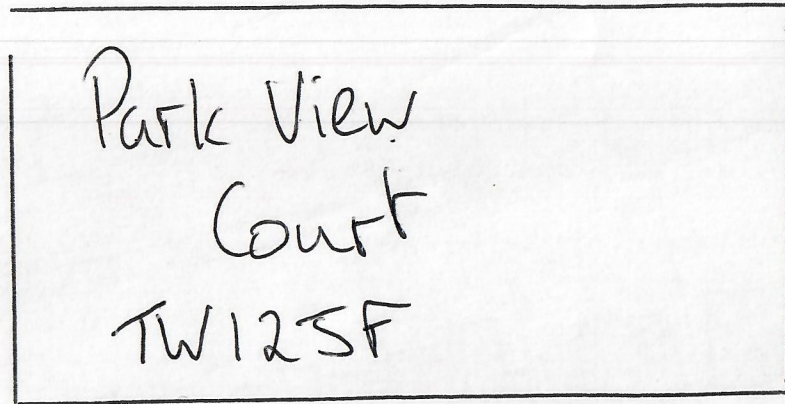 Park View
Court
TW12SF